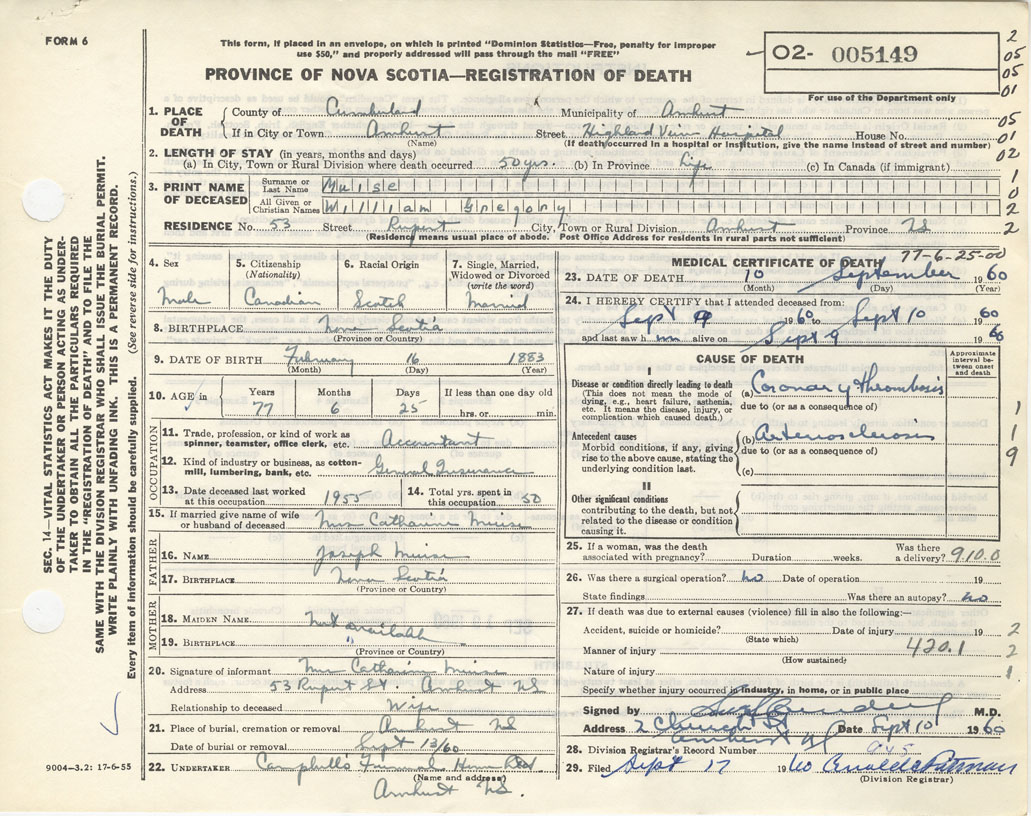 FORM 6
This form, if placed in an envelope, on which is printed "Dominion Statistics—Free, penalty for improper
use $50," and properly addressed will pass through the mail "FREE"
PROVINCE OF NOVA SCOTIA—REGISTRATION OF DEATH
02- 005149
For use of the Department only
2
05
05
01
1. PLACE OF DEATH
County of Cumberland Municipality of Amherst
If in City or Town Amherst Street Highland View Hospital House No.
(Name) (If death occurred in a hospital or institution, give the name instead of street and number)
05
01
02
2. LENGTH OF STAY (in years, months and days)
(a) In City, Town or Rural Division where death occurred 50 yrs. (b) In Province Life (c) In Canada (if immigrant)
3. PRINT NAME OF DECEASED
Surname or Last Name Muise
All Given or Christian Names William Gregory
1
0
2
2
RESIDENCE No. 53 Street Rupert City, Town or Rural Division Amherst Province NS
(Residence means usual place of abode. Post Office Address for residents in rural parts not sufficient)
77-6-25-00
4. Sex
Male
5. Citizenship
(Nationality)
Canadian
6. Racial Origin
Scotch
7. Single, Married,
Widowed or Divorced
(write the word)
Married
8. BIRTHPLACE Nova Scotia
(Province or Country)
9. DATE OF BIRTH February 16 1883
(Month) (Day) (Year)
10. AGE in
Years Months Days If less than one day
77 6 25 hrs. or min.
OCCUPATION
11. Trade, profession, or kind of work as
spinner, teamster, office clerk, etc. Accountant
12. Kind of industry or business, as cotton-
mill, lumbering, bank, etc. General Insurance
13. Date deceased last worked
at this occupation 1955
14. Total yrs. spent in
this occupation 50
15. If married give name of wife
or husband of deceased Mrs Catharine Muise
FATHER
16. NAME Joseph Muise
17. BIRTHPLACE Nova Scotia
(Province or Country)
MOTHER
18. MAIDEN NAME Not available
19. BIRTHPLACE "
(Province or Country)
20. Signature of informant Mrs Catharine Muise
Address 53 Rupert St. Amherst NS
Relationship to deceased Wife
21. Place of burial, cremation or removal Amherst NS
Date of burial or removal Sept 13/60
22. UNDERTAKER Campbell's Funeral Home
(Name and address)
Amherst NS.
MEDICAL CERTIFICATE OF DEATH
23. DATE OF DEATH 10 September 1960
(Month) (Day) (Year)
24. I HEREBY CERTIFY that I attended deceased from:
Sept 9 1960 to Sept 10 1960
and last saw him alive on Sept 9 1960
CAUSE OF DEATH
Approximate
interval be-
tween onset
and death
I
Disease or condition directly leading to death
(This does not mean the mode of
dying, e.g., heart failure, asthenia,
etc. It means the disease, injury, or
complication which caused death.)
(a) Coronary Thrombosis
due to (or as a consequence of)
Antecedent causes
Morbid conditions, if any, giving
rise to the above cause, stating the
underlying condition last.
(b) Arteriosclerosis
due to (or as a consequence of)
(c)
1
1
9
II
Other significant conditions
contributing to the death, but not
related to the disease or condition
causing it.
25. If a woman, was the death
associated with pregnancy? Duration weeks. Was there
a delivery? 910.0
26. Was there a surgical operation? No Date of operation 19
State findings Was there an autopsy? No
27. If death was due to external causes (violence) fill in also the following:—
Accident, suicide or homicide? Date of injury 19
(State which)
Manner of injury 420.1
(How sustained)
Nature of injury
2
2
1
Specify whether injury occurred in industry, in home, or in public place
Signed by M.D.
Address 2 Church St Date Sept 10 1960
Amherst NS
28. Division Registrar's Record Number 945
29. Filed Sept 17 1960
(Division Registrar)
SEC. 14—VITAL STATISTICS ACT MAKES IT THE DUTY
OF THE UNDERTAKER OR PERSON ACTING AS UNDER-
TAKER TO OBTAIN ALL THE PARTICULARS REQUIRED
IN THE "REGISTRATION OF DEATH" AND TO FILE THE
SAME WITH THE DIVISION REGISTRAR WHO SHALL ISSUE THE BURIAL PERMIT.
WRITE PLAINLY WITH UNFADING INK. THIS IS A PERMANENT RECORD.
Every item of information should be carefully supplied. (See reverse side for instructions.)
9004—3.2: 17-6-55